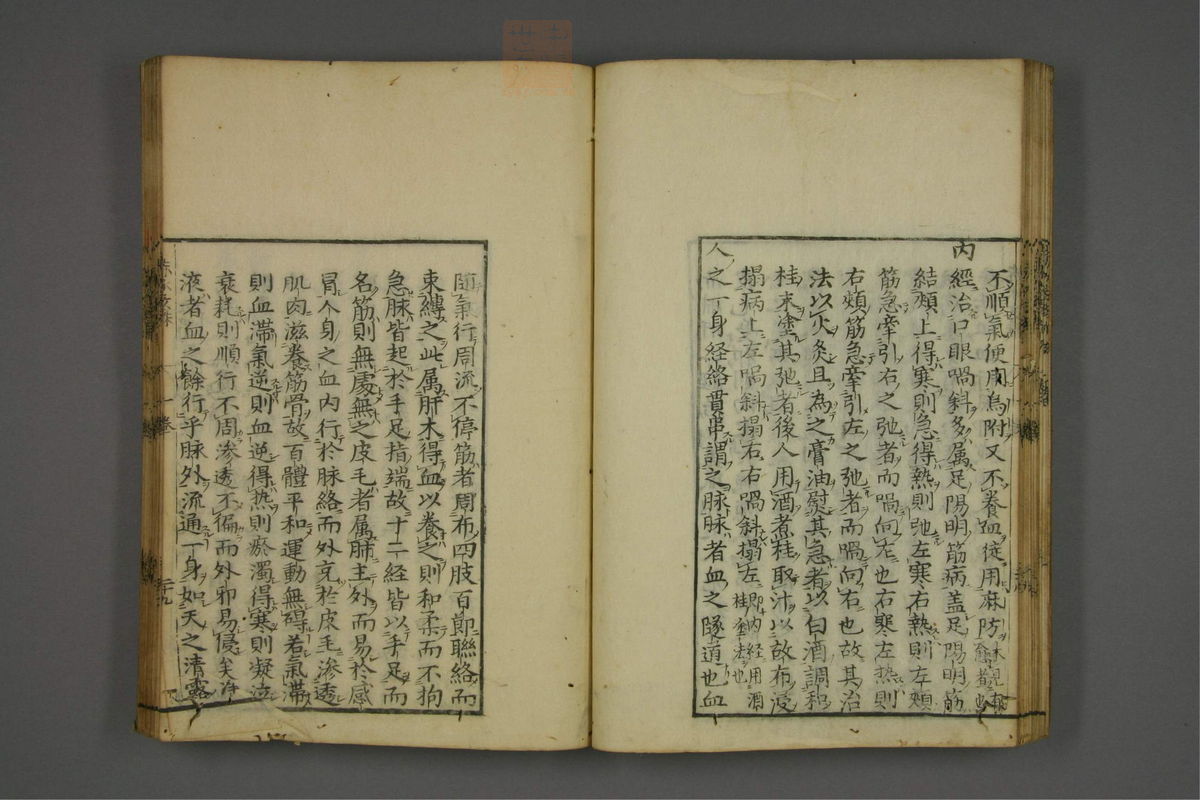 不順氣便用烏附又不養血徒用麻防
内經治口眼喎斜多属足陽明筋病盖足陽明筋
結頰上得寒則急得熱則弛左寒右熱則左頰
筋急牽引右之弛者而喎向左也右寒左热則
右頰筋急牽引左之弛者而喎向右也故其治
法以火灸且為之膏油熨其急者以白酒調和
桂末塗其弛者後人用酒煮桂取汁以故布浸
搨病上左喎斜搨右右喎斜搨左即内經用酒桂塗法也
人之一身経絡貫串謂之脉脉者血之隧道也血
随氣行周流不停筋者周布四肢百節聯絡而
束縛之此属肝木得血以養之則和柔而不拘
急脉皆起於手足指端故十二経皆以手足而
名筋則無處無之皮毛者属肺主外而易於感
冒人身之血内行於脉絡而外充於皮毛滲透
肌肉滋養筋骨故百體平和運動無碍若氣滞
則血滞氣逆則血逆得热則瘀濁得寒則凝泣
衰耗則順行不周滲透不徧而外邪易侵矣津
液者血之餘行乎脉外流通一身如天之清露
一卷
二十九